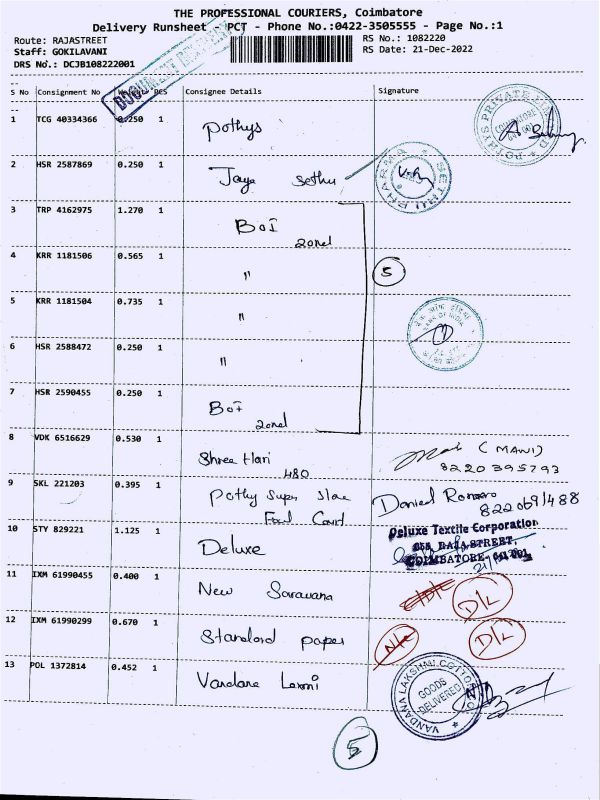 THE PROFESSIONAL COURIERS, Coimbatore
Delivery Runsheet - PCT - Phone No.:0422-3505555 - Page No.:1
Route: RAJASTREET RS No.: 1082220
Staff: GOKILAVANI RS Date: 21-Dec-2022
DRS No.: DCJB108222001
S No Consignment No PCS Consignee Details Signature
1 TCG 40334366 0.250 1 Pothys
2 HSR 2587869 0.250 1 Jaya Sethu
3 TRP 4162975 1.270 1 BOI
Zonel
4 KRR 1181506 0.565 1 "
5
5 KRR 1181504 0.735 1 "
6 HSR 2588472 0.250 1 "
7 HSR 2590455 0.250 1 BOI
Zonel
8 VDK 6516629 0.530 1 Shree Hari (MANI)
480 8220395793
9 SKL 221203 0.395 1 Pothy Super
Court
10 STY 829221 1.125 1 Deluxe
Deluxe Textile Corporation
RAJA STREET,
COIMBATORE-641 001
11 IXM 61990455 0.400 1 New Saravana D/L
12 IXM 61990299 0.670 1 Standard paper N/C D/L
13 POL 1372814 0.452 1 Vandana Laxmi
GOODS
DELIVERED
5